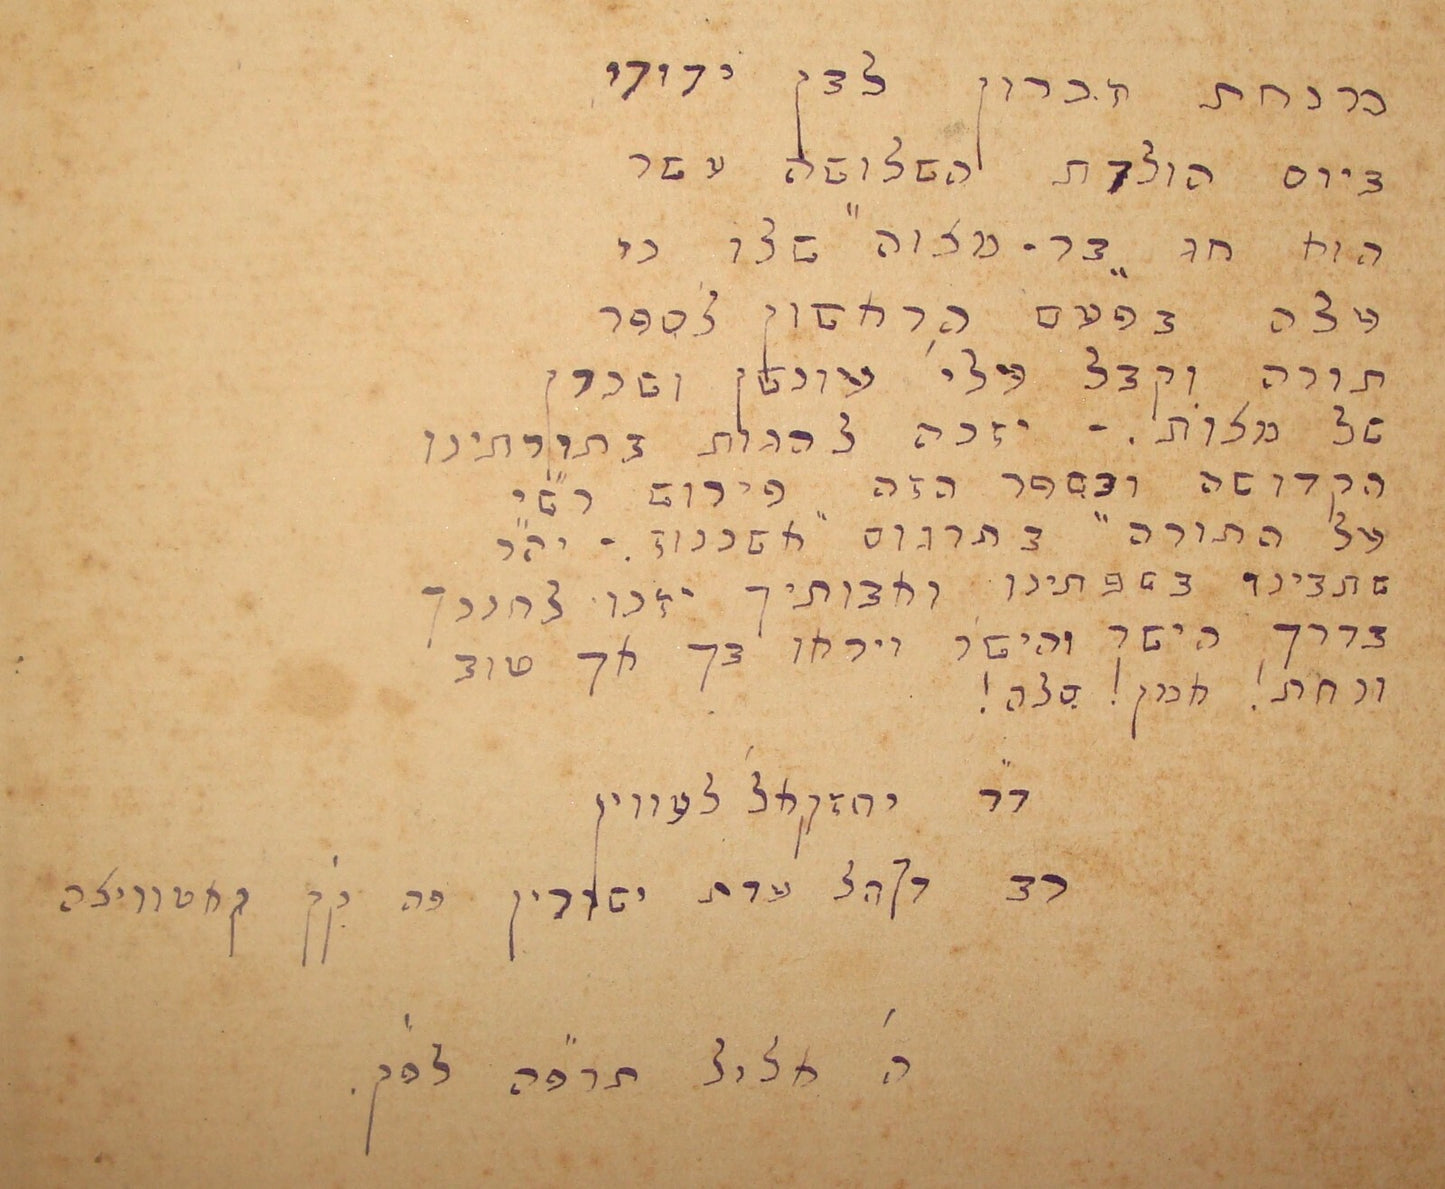 מנחת זכרון לבן ידידי
ביום הולדת השלושה עשר
הוא חג „בר-מצוה" שלו כי
עלה בפעם הראשון לספר
תורה וקבל עלי' עונשן ושכרן
של מצות. - יזכה להגות בתורתינו
הקדושה ובספר הזה פירוש רש"י
על התורה" בתרגום "אשכנוז. - יה"ר
שתבינו בשפתינו ואבותיך יזכו לחנכך
בדרך הישר והישר ויראו בך אך טוב
ונחת! אמן! סלה!
ד"ר יחזקאל לעווין
רב דקהל עדת ישורין פה ק'ק קאטוויצה
ה' אלול תרפ"ה לפ'ק.